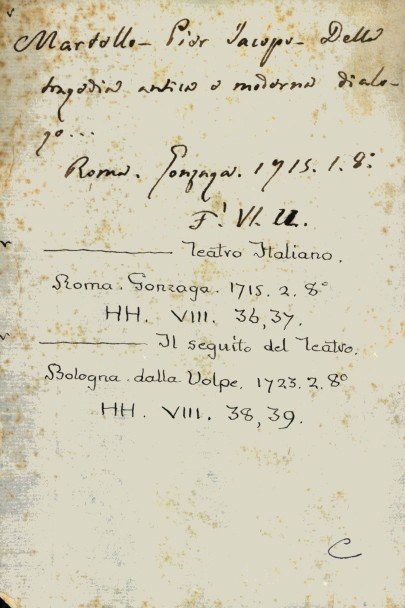 Martello - Pier Jacopo - Della
tragedia antica e moderna dialo-
go...
Roma. Gonzaga. 1715. 1. 8°.
F. VI. 22.
——— Teatro Italiano.
Roma. Gonzaga. 1715. 2. 8°
HH. VIII. 36, 37.
——— Il seguito del Teatro.
Bologna. dalla Volpe. 1723. 2. 8°
HH. VIII. 38, 39.
C